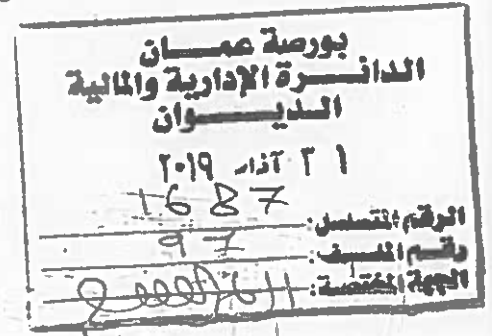 بورصة عمـــان
الدائـــرة الإدارية والمالية
الديـــوان
٣١ آذار ٢٠١٩
الرقم المتسلسل: 1687
رقم الملف: 97
الجهة المختصة: